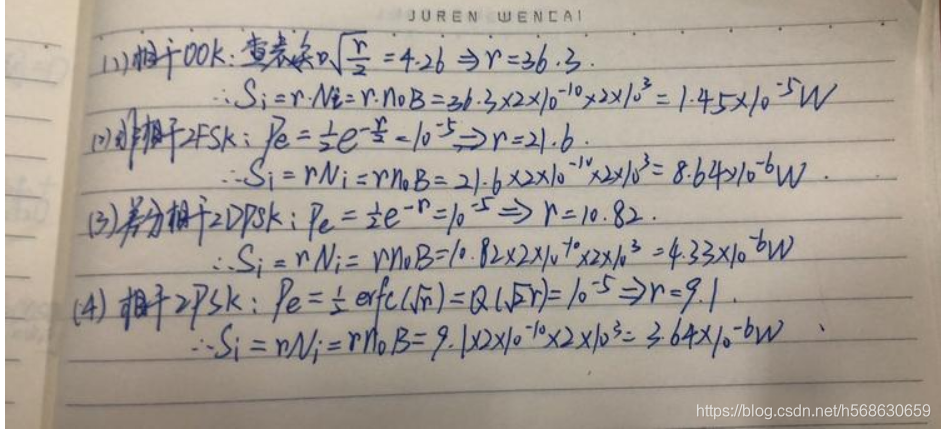 JUREN WENCAI
(1)相干OOK:查表知√(r/2)=4.26⇒r=36.3.
∴Si=r·Ni=r·n0B=36.3×2×10^-10×2×10^3=1.45×10^-5W
(2)非相干2FSK:Pe=½e^(-r/2)=10^-5⇒r=21.6.
∴Si=rNi=rn0B=21.6×2×10^-10×2×10^3=8.64×10^-6W.
(3)差分相干2DPSK:Pe=½e^-r=10^-5⇒r=10.82.
∴Si=rNi=rn0B=10.82×2×10^-10×2×10^3=4.33×10^-6W
(4)相干2PSK:Pe=½erfc(√r)=Q(√2r)=10^-5⇒r=9.1.
∴Si=rNi=rn0B=9.1×2×10^-10×2×10^3=3.64×10^-6W
https://blog.csdn.net/h568630659